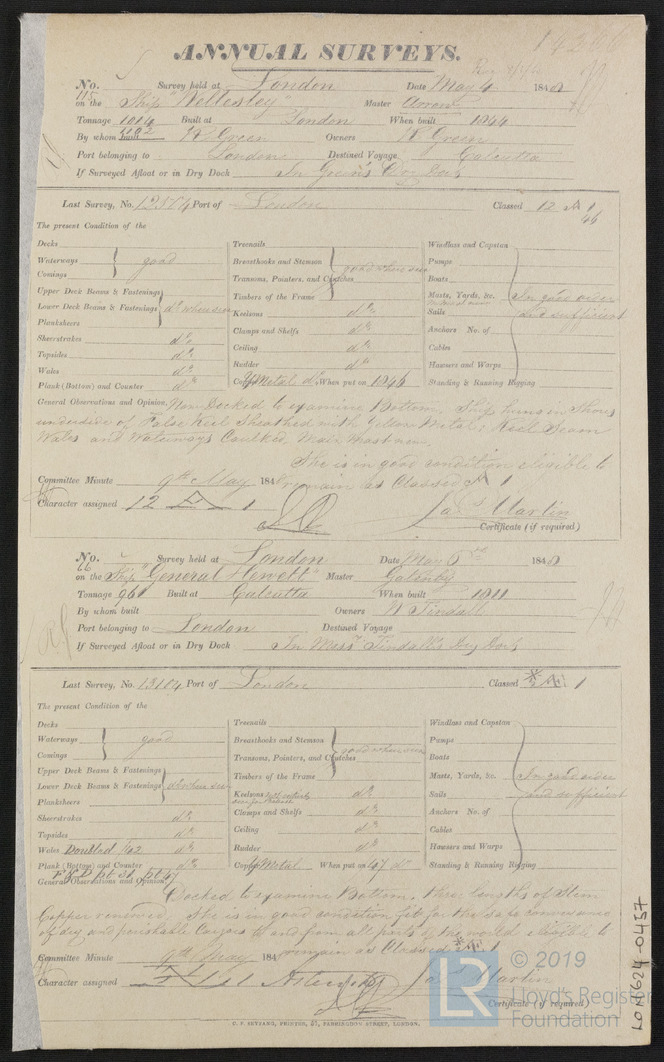 14266
ANNUAL SURVEYS.
No. 115 Survey held at London Date May 4 1848
on the Ship "Wellesley" Master Arrow
Tonnage 1014 Built at London When built 1844
By whom built R Green Owners R Green
Port belonging to London Destined Voyage Calcutta
If Surveyed Afloat or in Dry Dock In Green's Dry Dock
Last Survey, No. 12574 Port of London Classed 12 A 1 46
The present Condition of the
Decks
Waterways good
Comings
Upper Deck Beams & Fastenings
Lower Deck Beams & Fastenings do where seen
Planksheers
Sheerstrakes do
Topsides do
Wales do
Plank (Bottom) and Counter do
Treenails
Breasthooks and Stemson good where seen
Transoms, Pointers, and Crutches
Timbers of the Frame
Keelsons do
Clamps and Shelfs do
Ceiling do
Rudder do
Copper Y Metal do When put on 1846
Windlass and Capstan
Pumps
Boats
Masts, Yards, &c. In good order
Sails and sufficient
Anchors No. of
Cables
Hawsers and Warps
Standing & Running Rigging
General Observations and Opinion, Now Docked to examine Bottom. Ship hung in Shores
underside of False Keel Sheathed with Yellow Metal; Keel Seam
Wales and Waterways Caulked, Main Mast new.
She is in good condition eligible to
Committee Minute 9th May 184 remain as Classed A 1
Character assigned 12 A 1 Jas Martin
Certificate (if required)
No. 66 Survey held at London Date May 5 1848
on the Ship "General Hewett" Master Gatenby
Tonnage 961 Built at Calcutta When built 1811
By whom built Owners W Tindall
Port belonging to London Destined Voyage
If Surveyed Afloat or in Dry Dock In Messrs Tindall's Dry Dock
Last Survey, No. 13104 Port of London Classed 1
The present Condition of the
Decks
Waterways good
Comings
Upper Deck Beams & Fastenings
Lower Deck Beams & Fastenings do where seen
Planksheers
Sheerstrakes do
Topsides do
Wales Doubled do
Plank (Bottom) and Counter do
Treenails
Breasthooks and Stemson good where seen
Transoms, Pointers, and Crutches
Timbers of the Frame
Keelsons do
Clamps and Shelfs do
Ceiling do
Rudder do
Copper Y Metal When put on 47 do
Windlass and Capstan
Pumps
Boats
Masts, Yards, &c. In good order
Sails and sufficient
Anchors No. of
Cables
Hawsers and Warps
Standing & Running Rigging
General Observations and Opinion,
Docked to examine Bottom, three lengths of Stem
Copper renewed. She is in good condition fit for the safe conveyance
of dry and perishable Cargoes to and from all parts of the world eligible to
Committee Minute 9th May 184 remain as Classed 1
Character assigned Jas Martin
Certificate (if required)
C. F. SEYFANG, PRINTER, FARRINGDON STREET, LONDON.
LON624-0437
© 2019
LR Lloyd's Register
Foundation